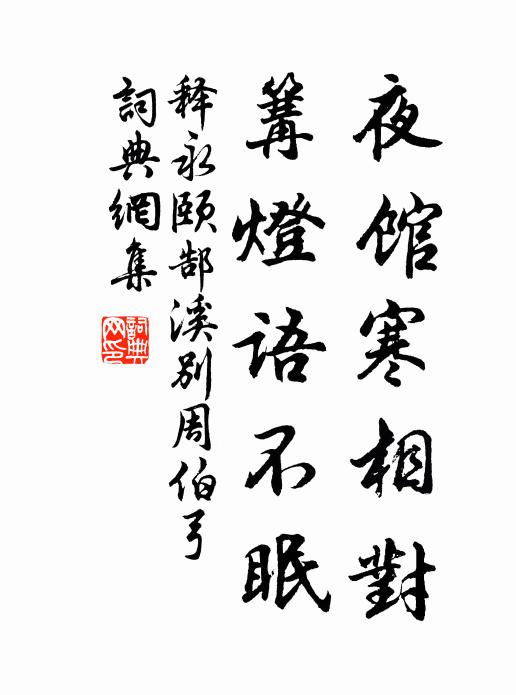 夜館寒相對
篝燈語不眠
释永颐郜溪别周伯弓
詞典網集
詞典
网印